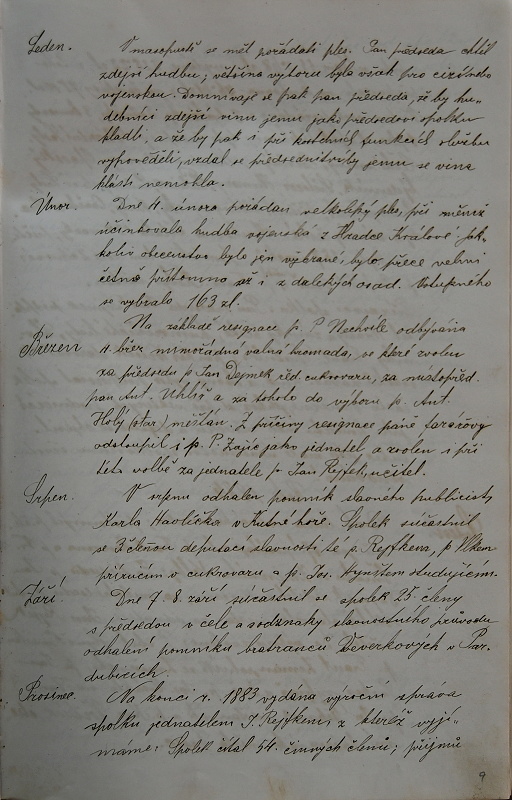 Leden. V masopustě se měl pořádati ples. Pan předseda chtěl
zdejší hudbu; většina výboru byla však pro cizího
vojenskou. Domnívaje se pak pan předseda, že by hu-
debníci zdejší vinu jemu jako předsedovi spolku
kladli, a že by pak i při kostelních funkcích službu
vypověděli, vzdal se předsednictví by jemu se vina
klásti nemohla.
Únor. Dne 4. února pořádán velkolepý ples, při němž
účinkovala hudba vojenská z Hradce Králové. Jak-
koliv obecenstvo bylo jen vybrané, bylo přece velmi
četně přítomno až i z dalekých osad. Vstupného
se vybralo 163 zl.
Na základě resignace p. P. Nechvíle odbývána
Březen 4. břez mimořádná valná hromada, ve které zvolen
za předsedu p. Jan Dejmek řed. cukrovaru, za místopřed.
pan Ant. Uhlíř a za tohoto do výboru p. Ant.
Holý (star.) měšťan. Z příčiny resignace páně farářovy
odstoupil i p. P. Zajíc jako jednatel a zvolen i při
této volbě za jednatele p. Jan Rejfek, učitel.
Srpen. V srpnu odhalen pomník slavného publicisty
Karla Havlíčka v Kutné hoře. Spolek súčastnil
se 3 člennou deputací slavnosti té p. Rejfkem, p. Vlkem
příručím v cukrovaru a p. Jos. studujícím.
Září. Dne 7. 8. září súčastnil se spolek 25. členy
s předsedou v čele a s odznaky slavnostního průvodu
odhalení pomníku bratranců Veverkových v Par-
dubicích.
Prosinec. Na konci r. 1883 vydána výroční zpráva
spolku jednatelem J. Rejfkem, z kteréž vyjí-
máme: Spolek čítal 54. činných členů; příjmů
9